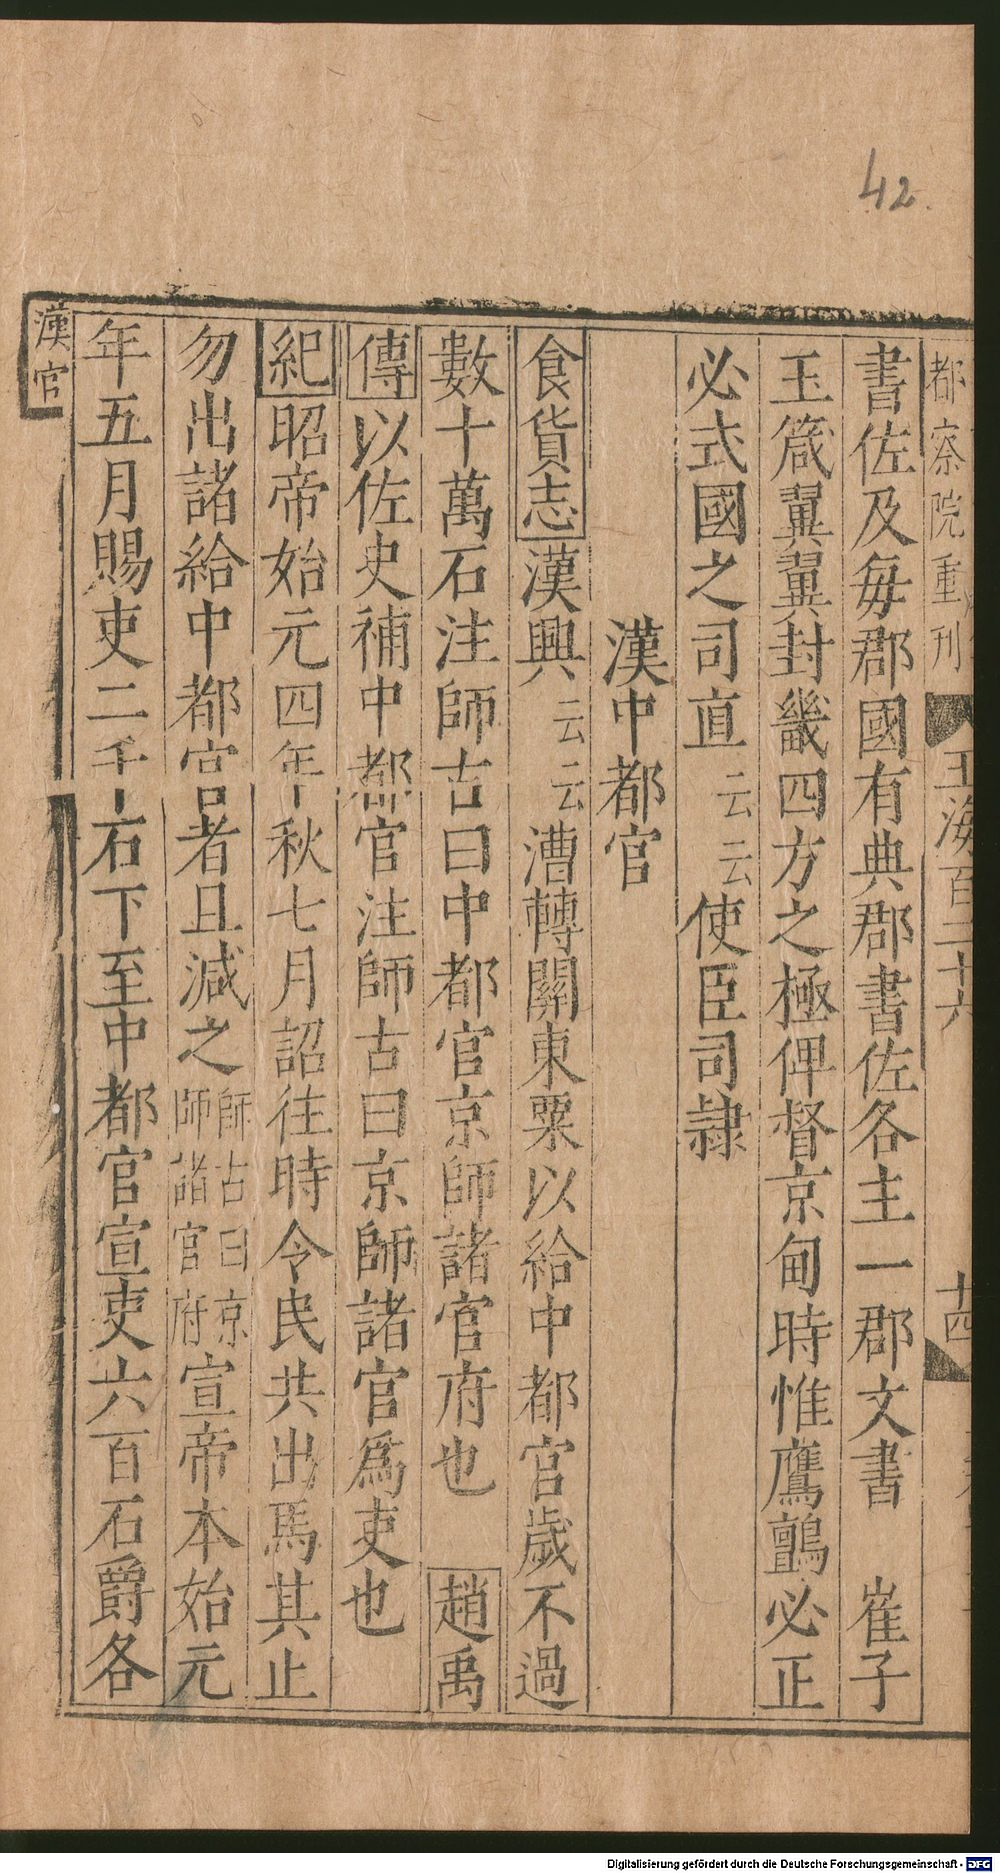 42.
都察院重刊
玉海百二十六
十四
書佐及每郡國有典郡書佐各主一郡文書 崔子
玉箴翼翼封畿四方之極俾督京甸時惟鷹鸇必正
必式國之司直云云使臣司隷
漢中都官
食貨志漢興云云漕轉關東粟以給中都官歲不過
數十萬石注師古曰中都官京師諸官府也 趙禹
傳以佐史補中都官注師古曰京師諸官爲吏也
紀昭帝始元四年秋七月詔往時令民共出馬其止
勿出諸給中都官者且減之師古曰京師諸官府宣帝本始元
年五月賜吏二千石下至中都官宣吏六百石爵各
漢官
Digitalisierung gefördert durch die Deutsche Forschungsgemeinschaft - DFG